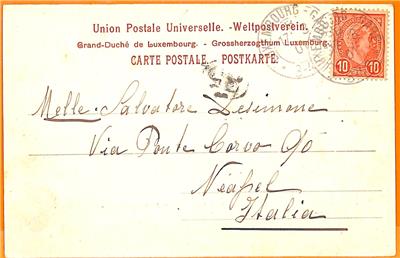 Union Postale Universelle. - Weltpostverein.
Grand-Duché de Luxembourg. - Grossherzogthum Luxemburg.
CARTE POSTALE. - POSTKARTE.
10 10
Melle. Salvatore Desimone
Via Ponte Corvo 90
Neapel
Italia